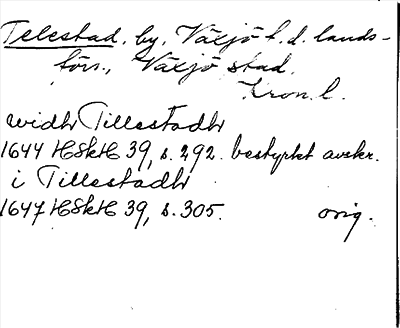 Telestad, by, Växjö f. d. lands-
förs., Växjö stad.
Kron. l.
widh Tillestadh
1644 HSkH 39, s. 292. bestyrkt avskr.
i Tillestadh
1647 HSkH 39, s. 305. orig.